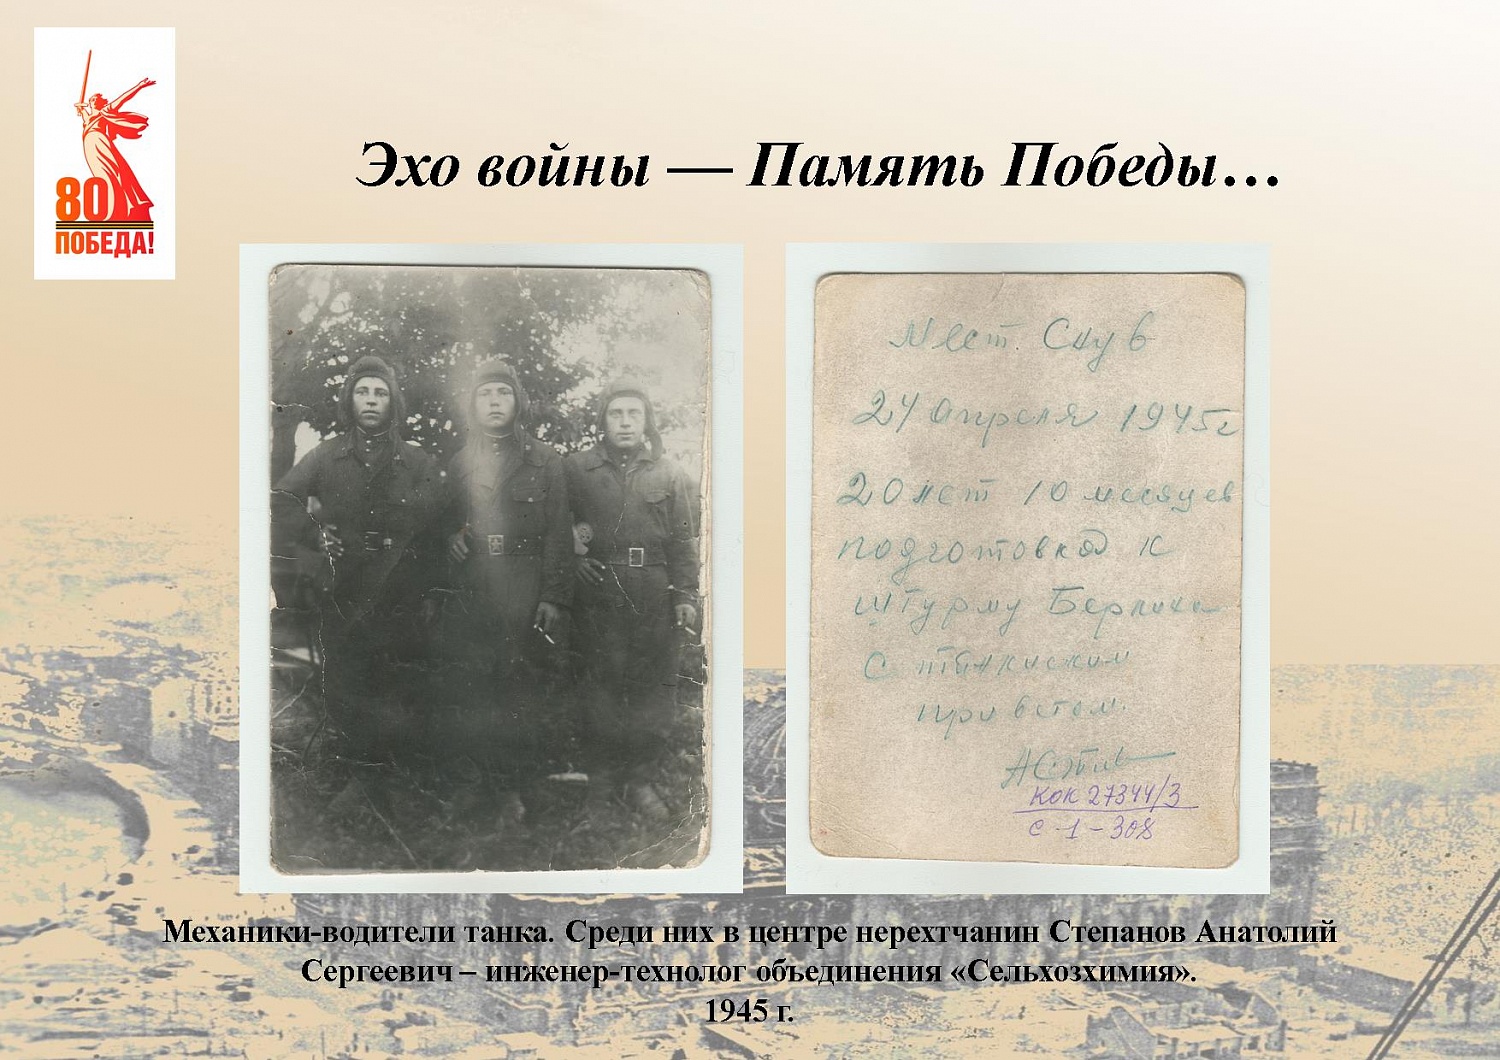 80
ПОБЕДА!
Эхо войны — Память Победы…
Мест. Скув
24 апреля 1945г
20 лет 10 месяцев
подготовка к
штурму Берлина
С танкиским
приветом.
КОК 27344/3
С-1-308
Механики-водители танка. Среди них в центре нерехтчанин Степанов Анатолий
Сергеевич – инженер-технолог объединения «Сельхозхимия».
1945 г.